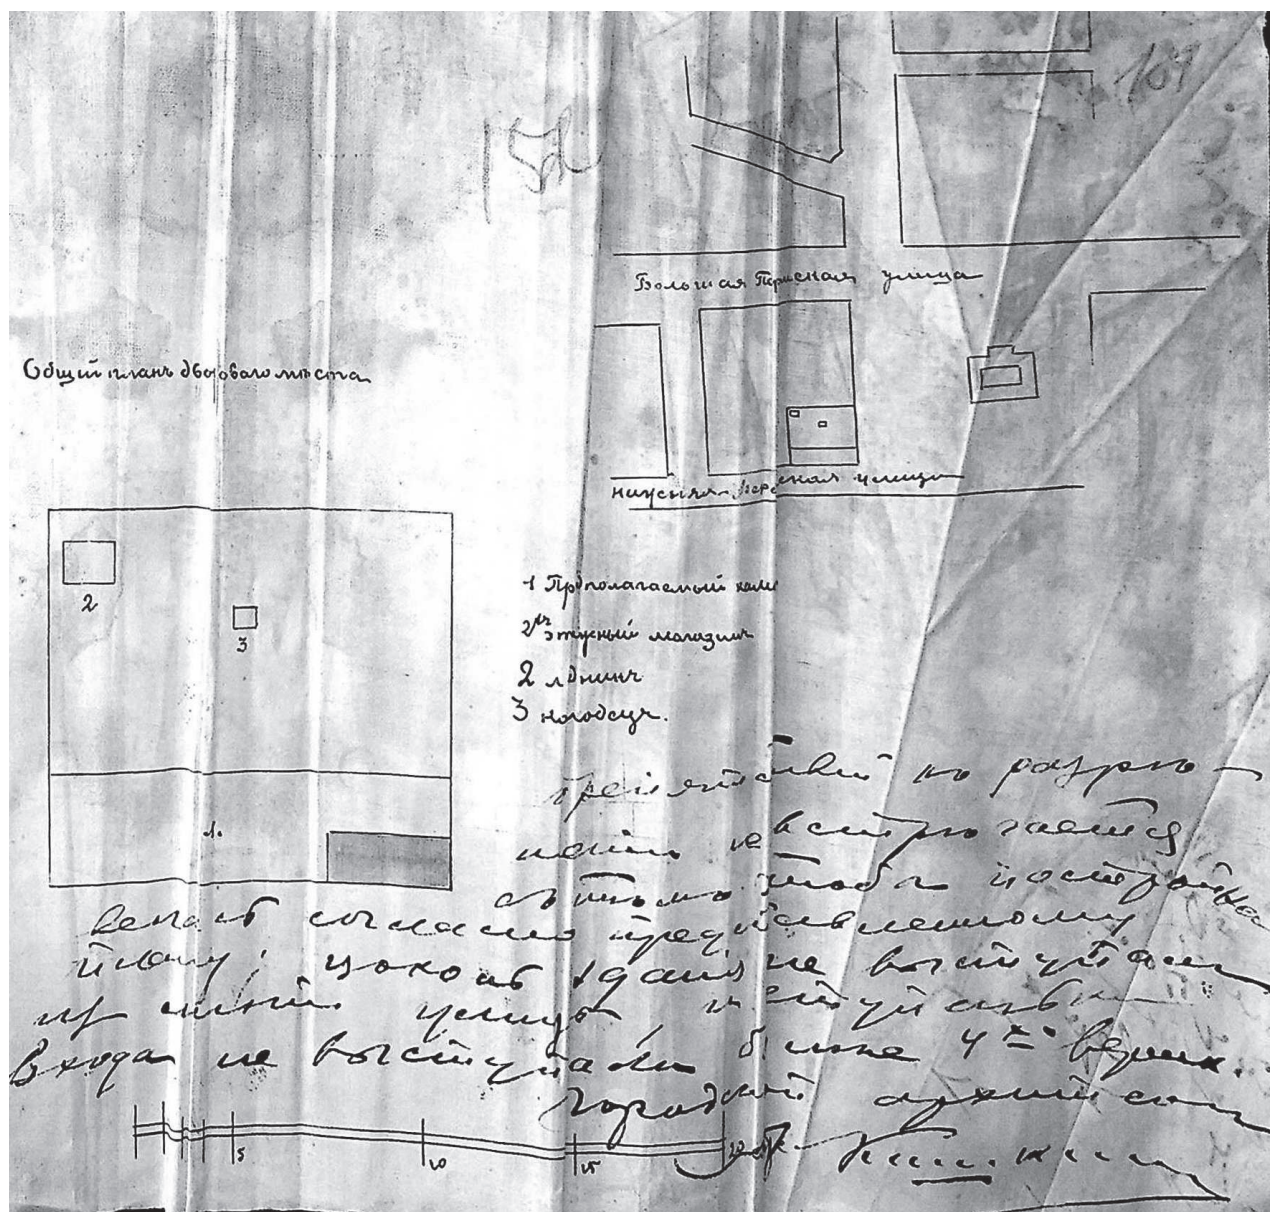 152
164
Большая Пермская улица
Общий планъ двороваго мѣста
нижняя улица
1 Прѣполагаемый
2хъ этжный магазинъ
2 лѣдникъ
3 колодецъ.
2
3
1.
не встрѣчается
съ тѣмъ чтобы постройка
велась согласно представленному
плану, цоколь зданія не выступалъ
изъ линіи улицы и ступеньки
входа не выступали болѣе 4хъ верш.
Городской архитект
5
10
15
20